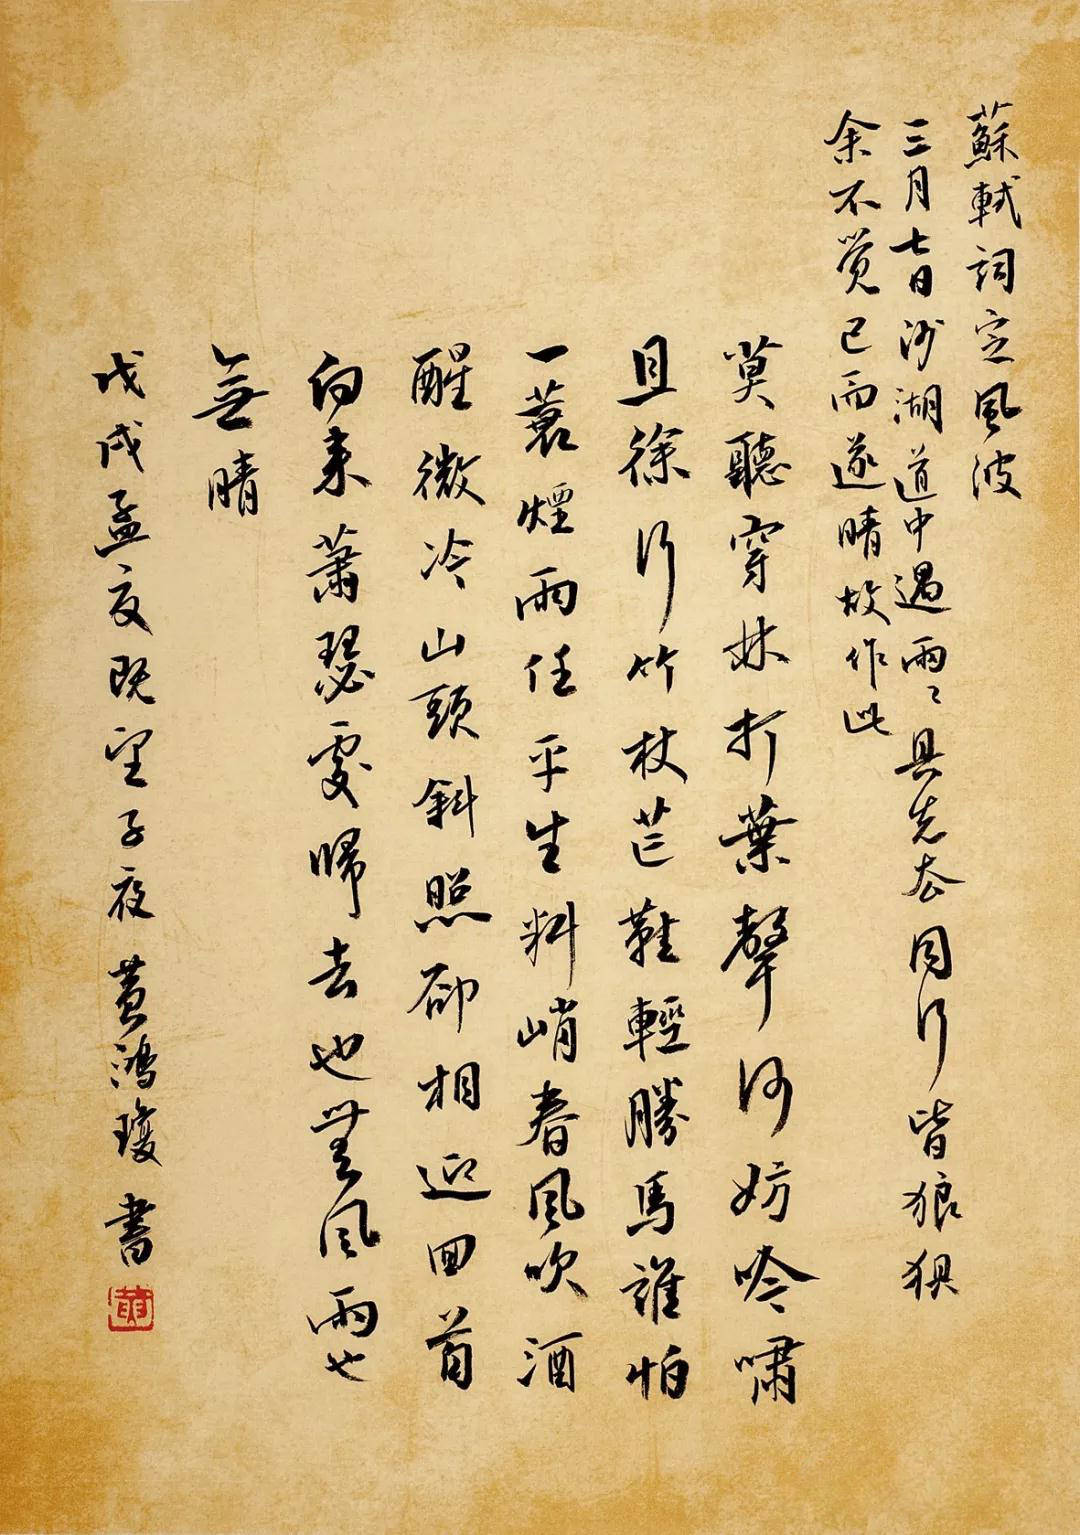 蘇軾詞定風波
三月七日沙湖道中遇雨〻具先去同行皆狼狽
余不觉已而遂晴故作此
莫聽穿林打葉聲何妨吟啸
且徐行竹杖芒鞋輕勝馬誰怕
一蓑煙雨任平生料峭春風吹酒
醒微冷山頭斜照卻相迎回首
向来蕭瑟處歸去也無風雨也
無晴
戊戌孟夏既望子夜黄鴻瓊書